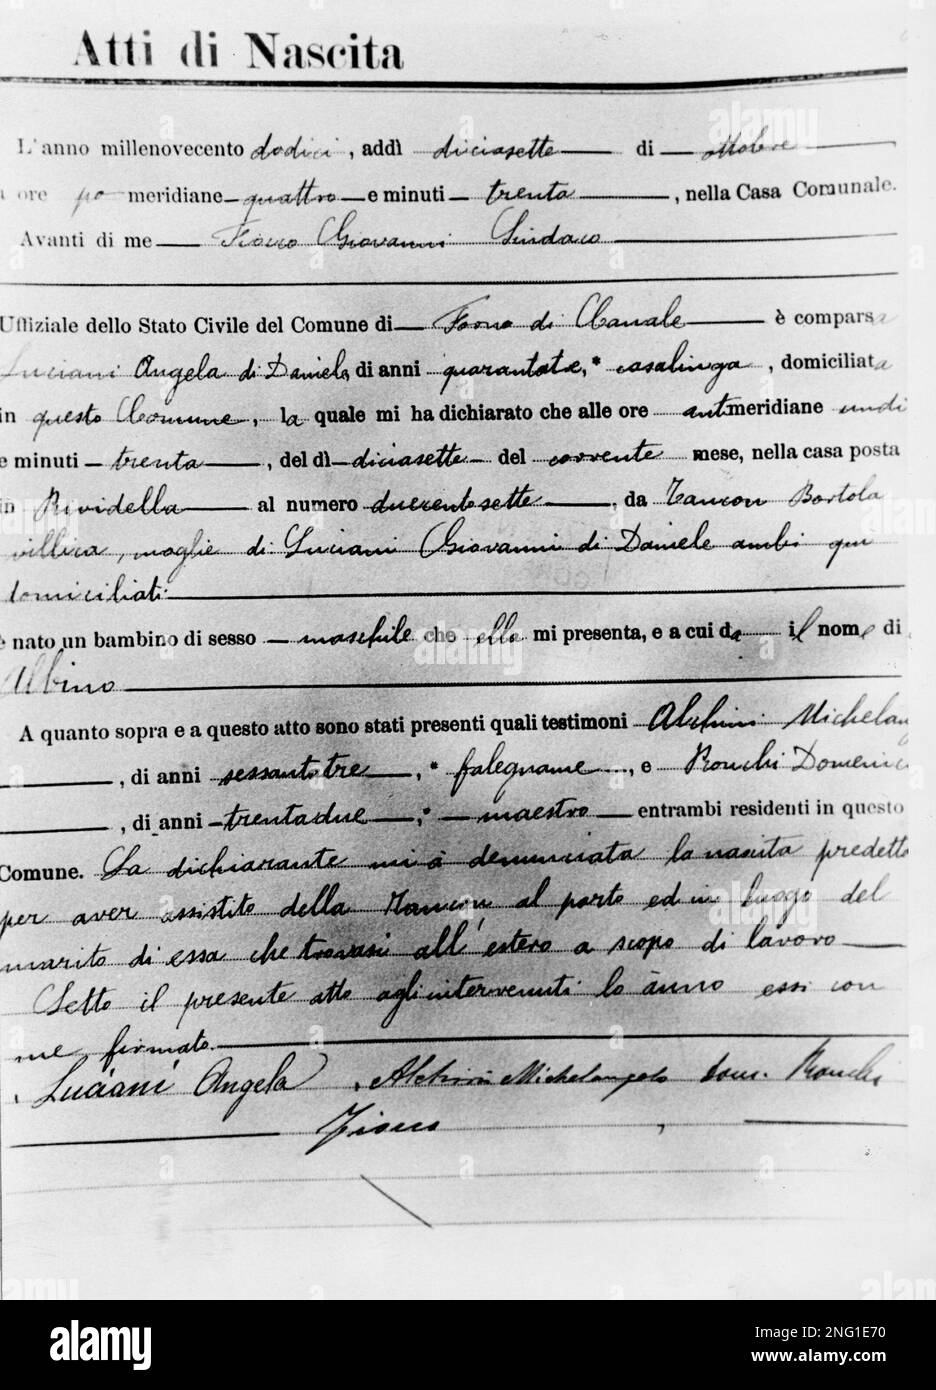 Atti di Nascita
L'anno millenovecento dodici, addì diciasette di ottobre
a ore po meridiane quattro e minuti trenta, nella Casa Comunale.
Avanti di me Fiocco Giovanni Sindaco
Uffiziale dello Stato Civile del Comune di Forno di Canale è comparsa
Luciani Angela di Daniele, di anni quarantatre, * casalinga, domiciliata
in questo Comune, la quale mi ha dichiarato che alle ore antimeridiane undi
e minuti trenta, del dì diciasette del corrente mese, nella casa posta
in Rividella al numero duecentosette, da Tancon Bortola
villica, moglie di Luciani Giovanni di Daniele ambi qui
domiciliati
è nato un bambino di sesso maschile che ella mi presenta, e a cui da il nome di
Albino
A quanto sopra e a questo atto sono stati presenti quali testimoni Alchini Michelan
, di anni sessantatre, * falegname, e Ronchi Domenico
, di anni trentadue, * maestro entrambi residenti in questo
Comune. La dichiarante mi à denunciata la nascita predetta
per aver assistito della Tancon al parto ed in luogo del
marito di essa che trovasi all'estero a scopo di lavoro
Letto il presente atto agli intervenuti lo ànno essi con
me firmato.
Luciani Angela Alchini Michelangelo Dom. Ronchi
Fiocco
alamy
Image ID: 2NG1E70
www.alamy.com